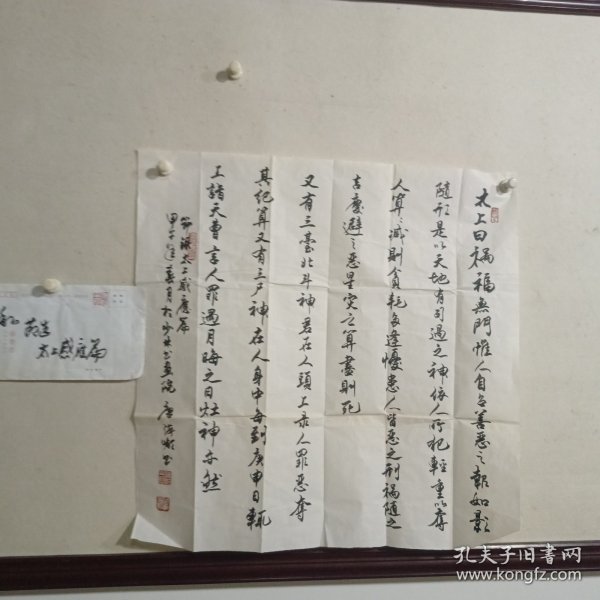 太上曰禍福無門惟人自召善惡之報如影
隨形是以天地有司過之神依人所犯輕重以奪
人算算減則貧耗多逢憂患人皆惡之刑禍隨之
吉慶避之惡星災之算盡則死
又有三臺北斗神君在人頭上录人罪惡奪
其紀算又有三尸神在人身中每到庚申日輒
上詣天曹言人罪過月晦之日灶神亦然
節錄太上感應篇
甲午年
太上感應篇
孔夫子旧书网
www.kongfz.com